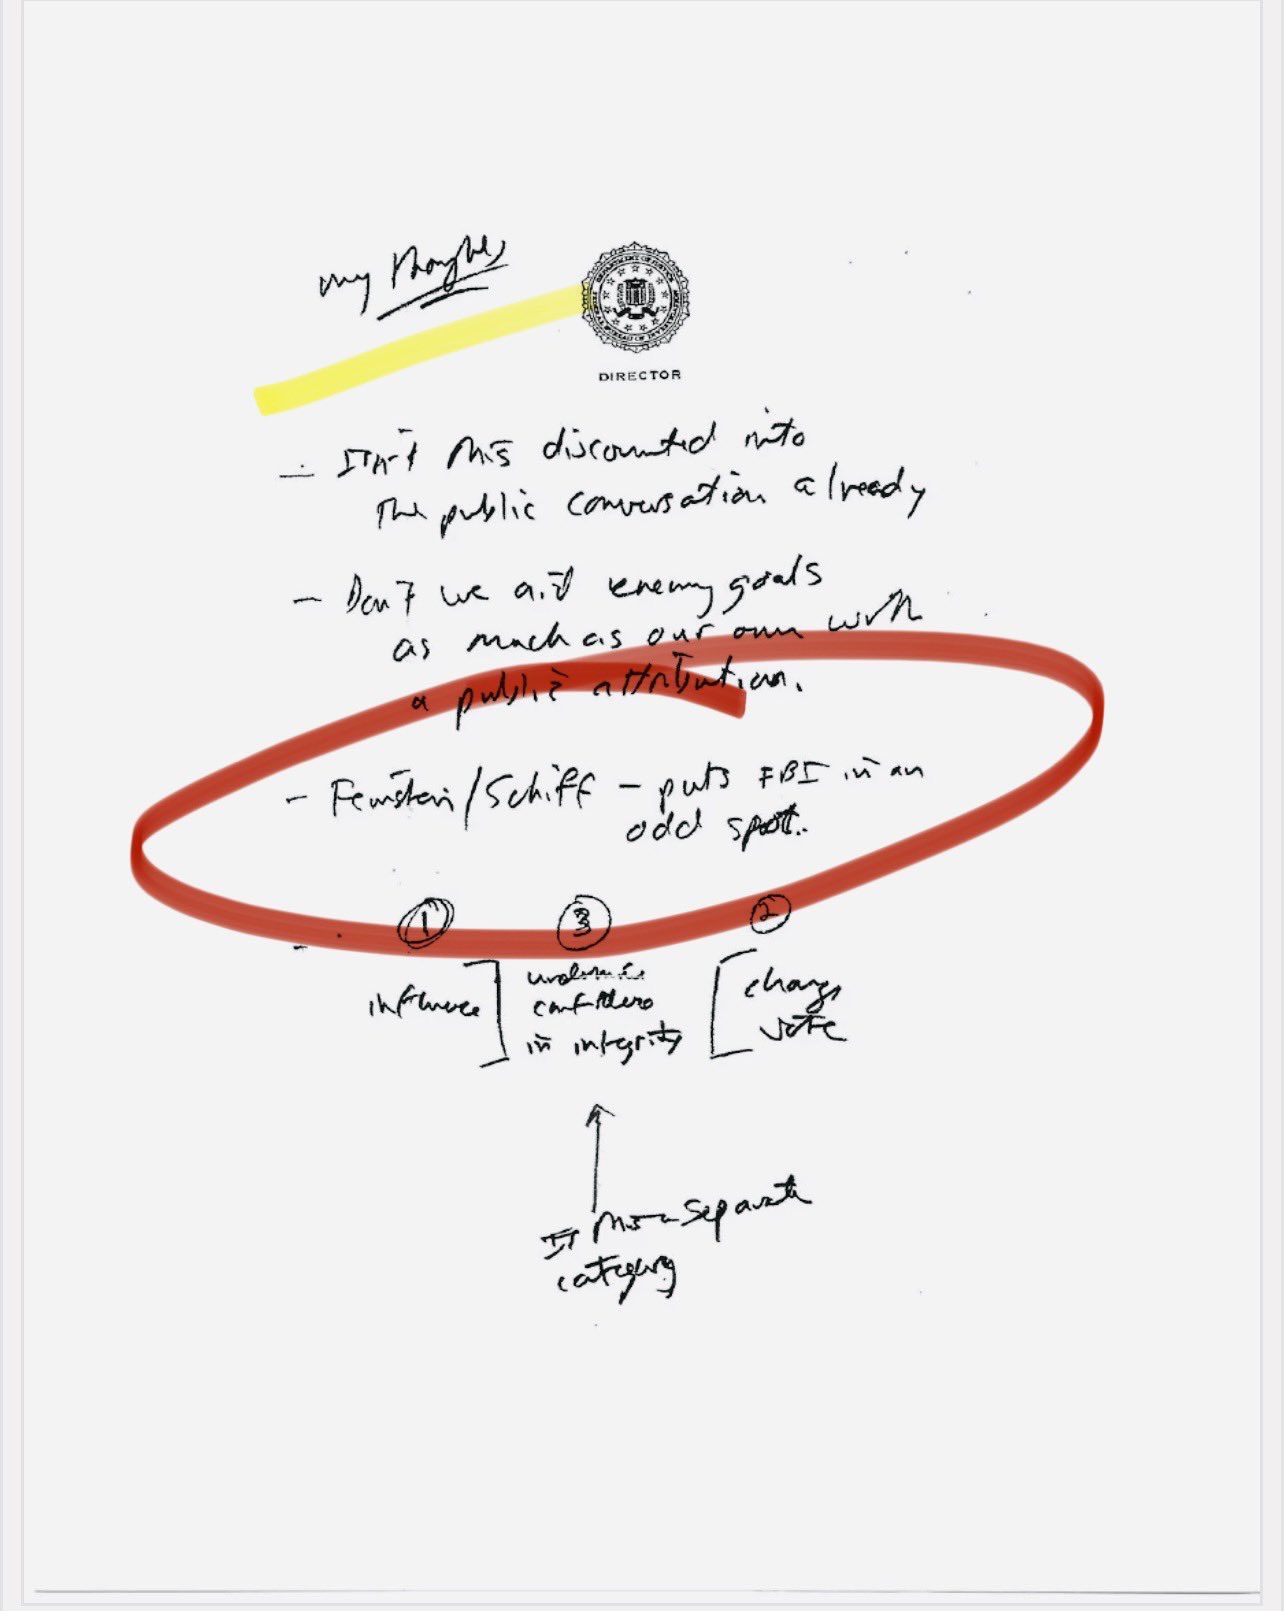 my thoughts
DEPARTMENT OF JUSTICE
FEDERAL BUREAU OF INVESTIGATION
DIRECTOR
- Isn't this discounted into
the public conversation already
- Don't we aid enemy goals
as much as our own with
a public attribution.
- Feinstein/Schiff - puts FBI in an
odd spot.
-
① ③ ②
influence] undermine [change
confidence vote
in integrity
Is this a separate
category